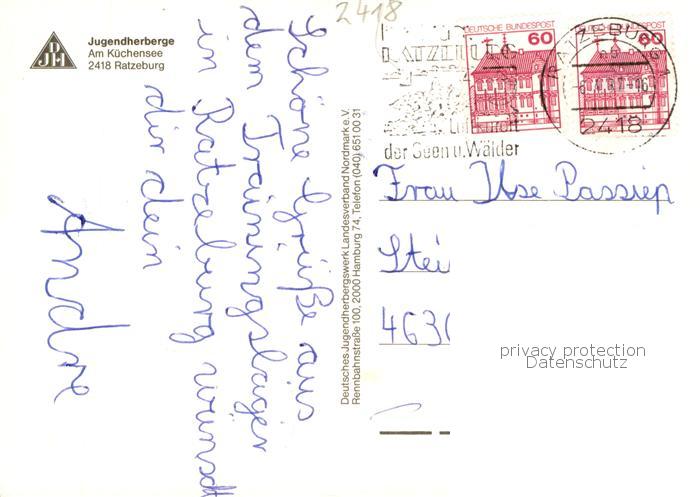 2418
DJH
Jugendherberge
Am Küchensee
2418 Ratzeburg
Schöne Grüße aus
dem Trainingslager
in Ratzeburg wünscht
dir dein
Andre
Deutsches Jugendherbergswerk Landesverband Nordmark e.V.
Rennbahnstraße 100, 2000 Hamburg 74, Telefon (040) 651 00 31
DEUTSCHE BUNDESPOST
60
60
RATZEBURG
Luftkurort
der Seen u. Wälder
RATZEBURG 1
2418
Frau Ilse Passiep
Stei
4630
privacy protection
Datenschutz